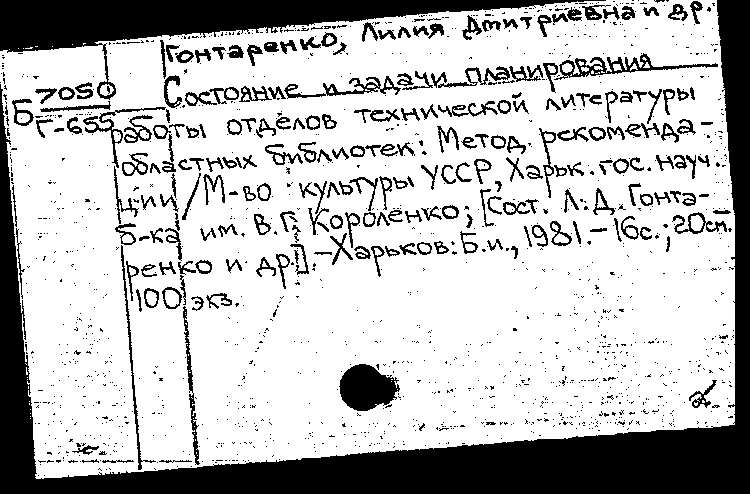 Гонтаренко, Лилия Дмитриевна и др.
Б 7050
Г-655
Состояние и задачи планирования
работы отделов технической литературы
областных библиотек: Метод. рекоменда-
ции / М-во культуры УССР, Харьк. гос. науч.
б-ка им. В.Г. Короленко; [Сост. Л.Д. Гонта-
ренко и др.]. - Харьков: Б.и., 1981. - 16с.; 20см.
100 экз.